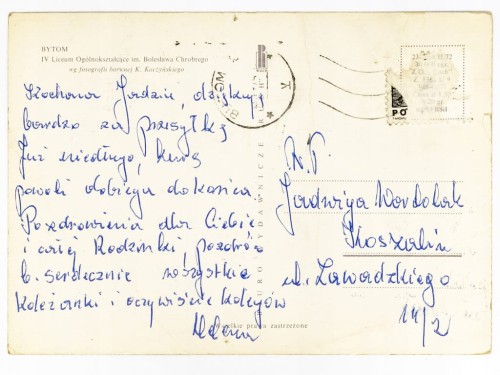 BYTOM
IV Liceum Ogólnokształcące im. Bolesława Chrobrego
wg fotografii barwnej K. Kaczyńskiego
Kochana Jadziu, dziękuję
bardzo za przesyłkę
Już niedługo, kurs
powoli dobiega do końca.
Pozdrowienia dla Ciebie
i całej Rodzinki, pozdrów
b. serdecznie wszystkie
koleżanki i oczywiście kolegów
Helena
Wszelkie prawa zastrzeżone
BIURO WYDAWNICZE RUCH
BYTOM
PO
Jadwiga
Koszalin
ul. Zawadzkiego
14/2